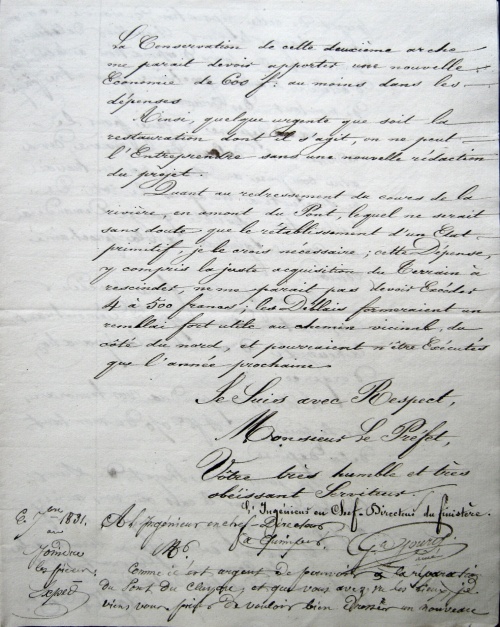 La Conservation de cette deuxième arche
me parait devoir apporter une nouvelle
Economie de 600 f. au moins dans les
dépenses
Ainsi, quelque urgente que soit la
restauration dont il s'agit, on ne peut
l'Entreprendre sans une nouvelle rédaction
du projet.
Quant au redressement du cours de la
rivière, en amont du Pont, lequel ne serait
sans doute que le rétablissement d'un Etat
primitif, je le crois nécessaire; cette Dépense,
y compris la juste acquisition du Terrain à
rescinder, ne me parait pas devoir Excéder
4 à 500 francs; les Déblais formeraient un
remblai fort utile au chemin vicinal, du
côté du nord, et pourraient n'être Exécutés
que l'année prochaine
Je Suis avec Respect,
Monsieur Le Préfet,
Votre très humble et très
obéissant Serviteur.
L'Ingénieur en Chef Directeur du finistère.
1831.
A l'Ingénieur en chef Directeur
à Quimper
Joindre
les pièces
Comme il est urgent, de pourvoir à la réparation
du Pont du, et que vous avez vu les lieux, je
viens vous prier de vouloir bien Dresser un nouveau